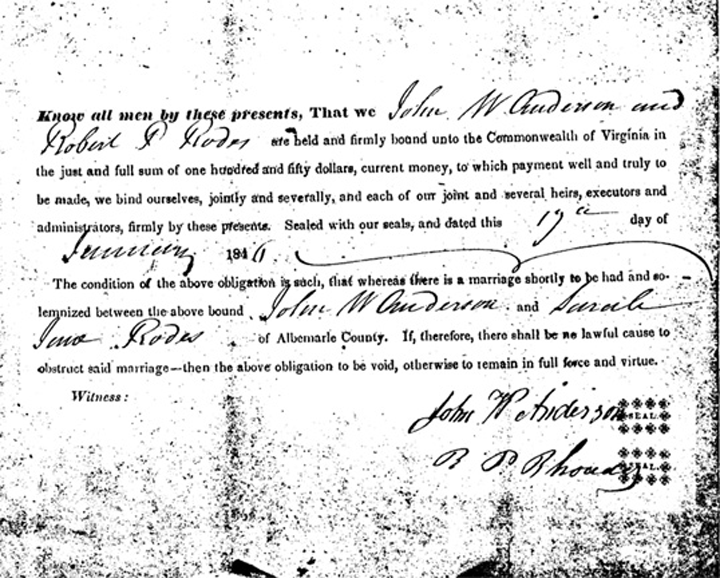 Know all men by these presents, That we John W Anderson and
Robert P Rodes are held and firmly bound unto the Commonwealth of Virginia in
the just and full sum of one hundred and fifty dollars, current money, to which payment well and truly to
be made, we bind ourselves, jointly and severally, and each of our joint and several heirs, executors and
administrators, firmly by these presents. Sealed with our seals, and dated this 17th day of
January 184
The condition of the above obligation is such, that whereas there is a marriage shortly to be had and so-
lemnized between the above bound John W Anderson and Sarah
Jane Rodes of Albemarle County. If, therefore, there shall be no lawful cause to
obstruct said marriage—then the above obligation to be void, otherwise to remain in full force and virtue.
Witness:
John W Anderson SEAL.
R P Rhoades SEAL.